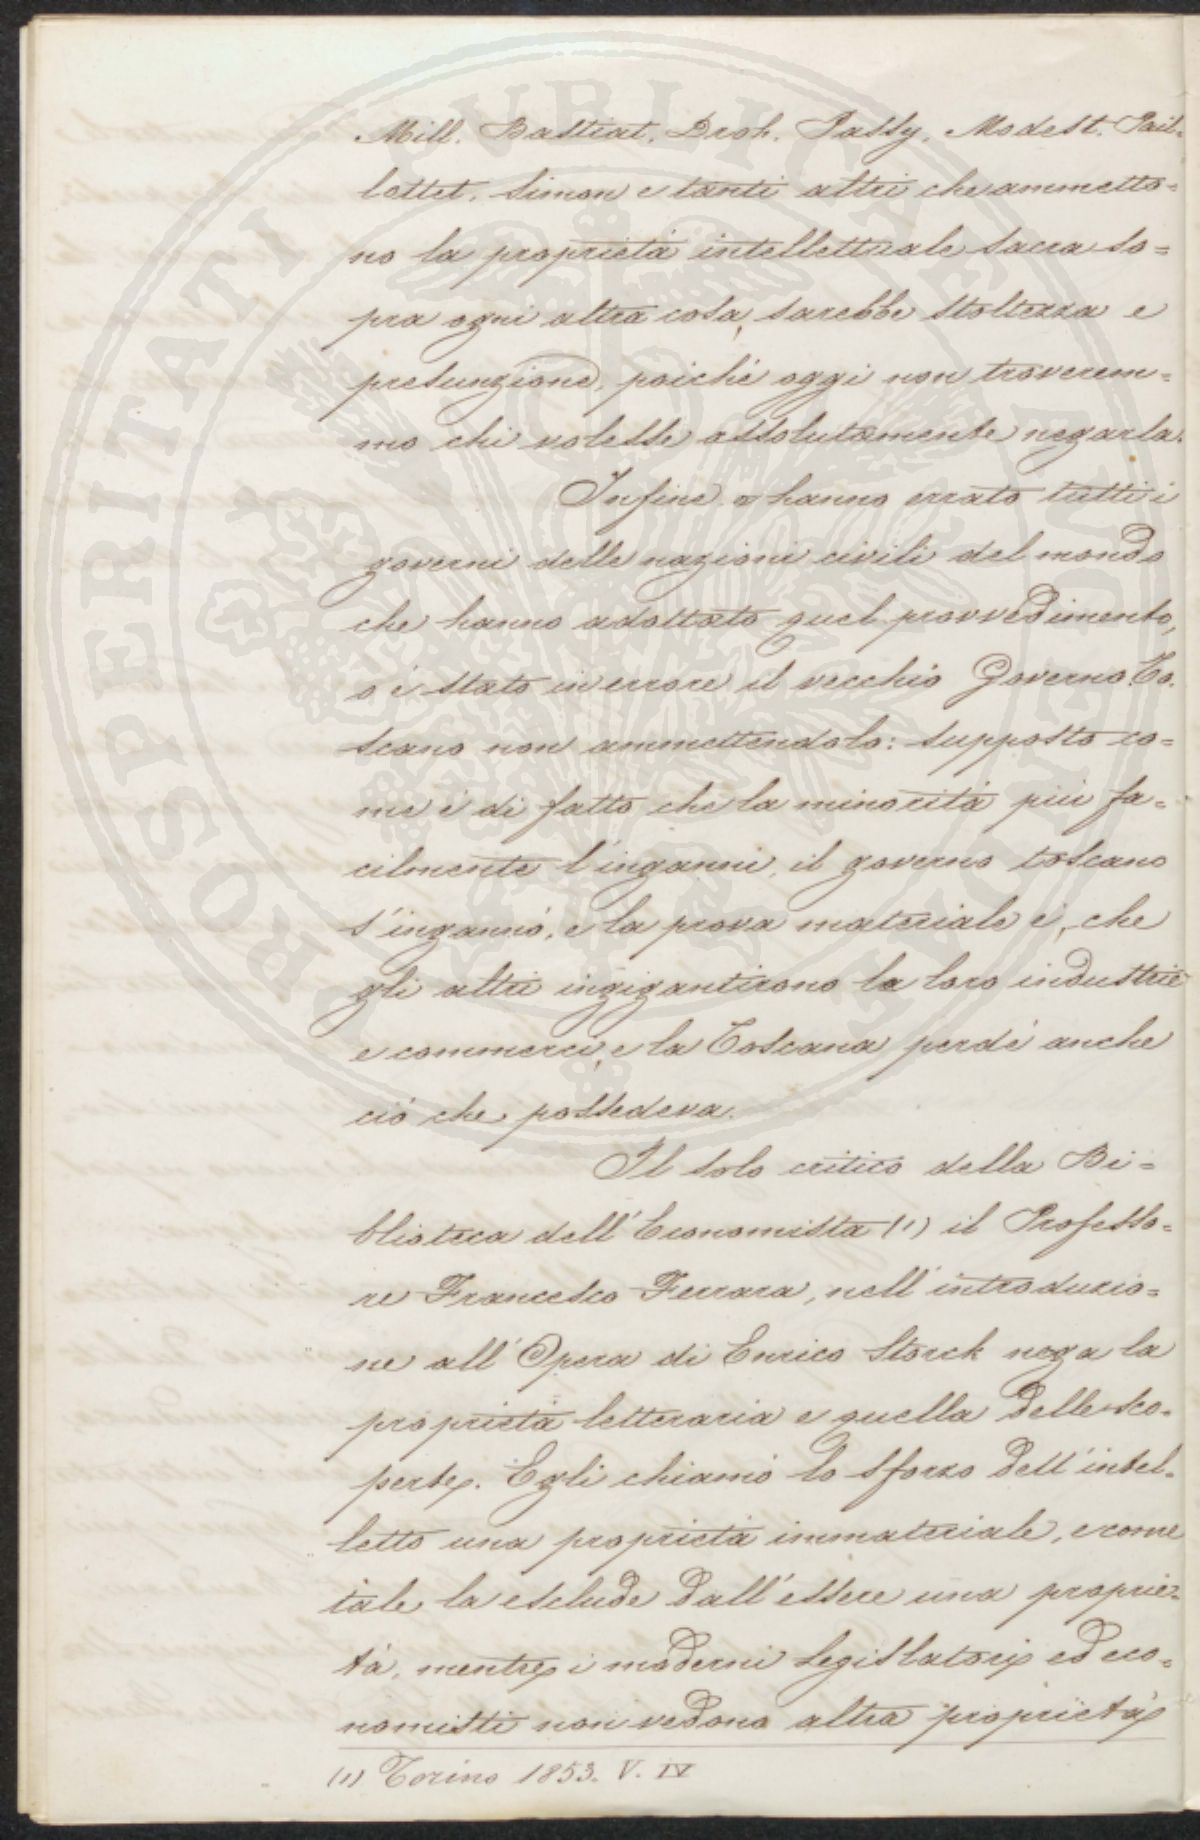 Mill. Bastiat. Droh. Passy. Modest. Pail-
lottet. Simon e tanti altri che ammetto=
no la proprietà intellettuale sacra so=
pra ogni altra cosa, sarebbe stoltezza e
presunzione, poichè oggi non troverem=
mo chi volesse assolutamente negarla.
Infine o hanno errato tutti i
governi delle nazioni civili del mondo
che hanno adottato quel provvedimento,
o è stato in errore il vecchio Governo To.
scano non ammettendolo: supposto co=
me è di fatto che la minorità più fa=
cilmente s'inganni, il governo toscano
s'ingannò, e la prova materiale è, che
gli altri ingigantirono la loro industrie
e commerci, e la Toscana perdè anche
ciò che possedeva.
Il solo critico della Bi=
blioteca dell'Economista (1) il Professo=
re Francesco Ferrara, nell'introduzio=
ne all'Opera di Enrico Storck nega la
proprietà letteraria e quella delle sco=
perte. Egli chiamò lo sforzo dell'intel=
letto una proprietà immateriale, e come
tale la esclude dall'essere una proprie=
tà, mentre i moderni legislatori ed eco=
nomisti non vedono altra proprietà
(1) Torino 1853. V. IV
PROSPERITATI PUBLICAE AUGENDAE